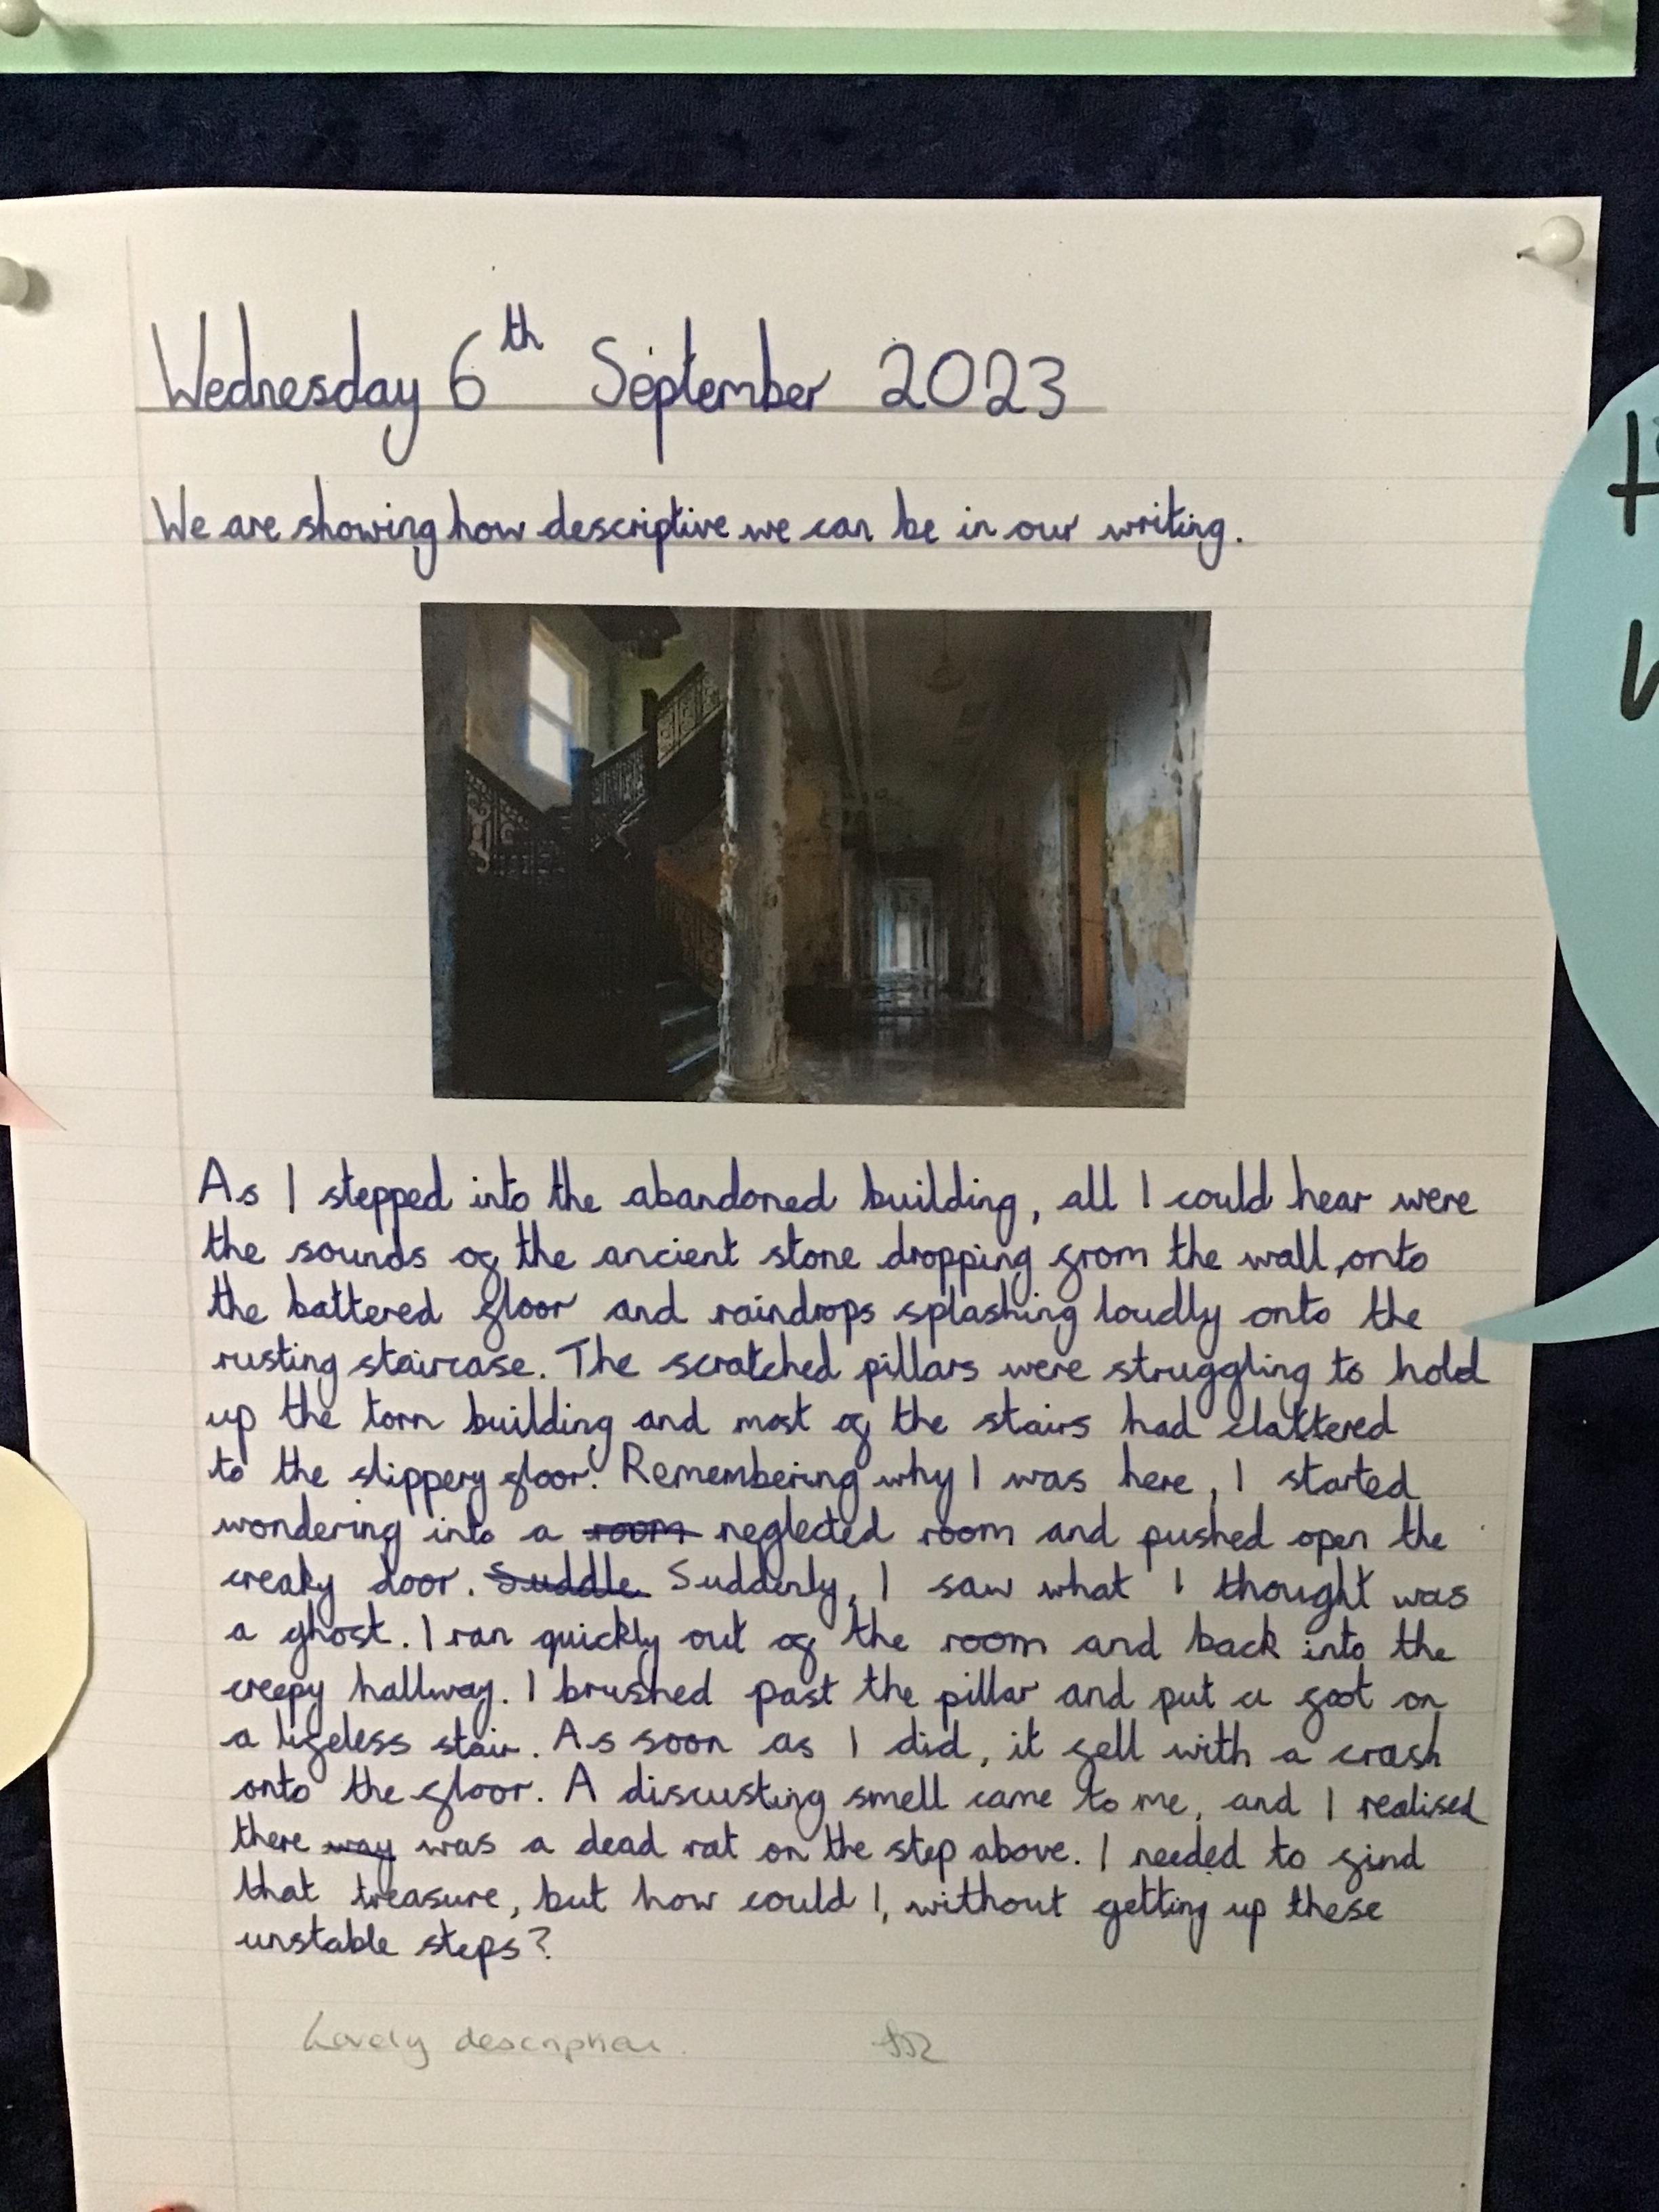 Wednesday 6th September 2023
We are showing how descriptive we can be in our writing.
As I stepped into the abandoned building, all I could hear were
the sounds of the ancient stone dropping from the wall, onto
the battered floor and raindrops splashing loudly onto the
rusting staircase. The scratched pillars were struggling to hold
up the torn building and most of the stairs had clattered
to the slippery floor. Remembering why I was here, I started
wondering into a room neglected room and pushed open the
creaky door. Suddle Suddenly, I saw what I thought was
a ghost. I ran quickly out of the room and back into the
creepy hallway. I brushed past the pillar and put a foot on
a lifeless stair. As soon as I did, it fell with a crash
onto the floor. A discusting smell came to me, and I realised
there way was a dead rat on the step above. I needed to find
that treasure, but how could I, without getting up these
unstable steps?
Lovely description.